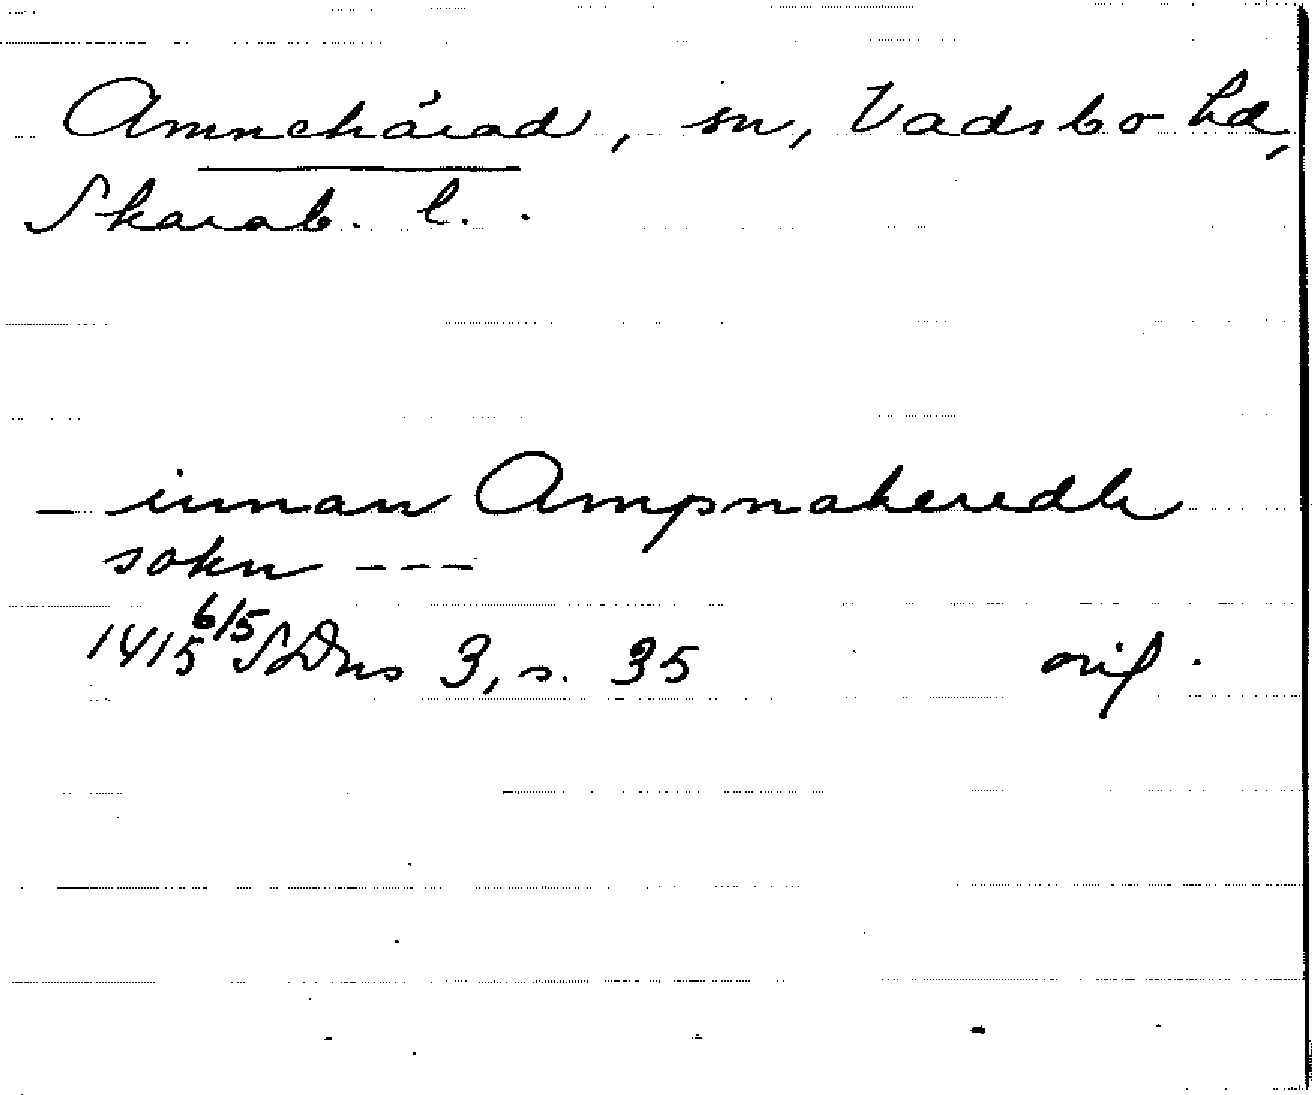 Amnehärad, sn, Vadsbo hd,
Skarab. l.
– innan Ampnaheredh
sokn ---
1415 6/5 SDns 3, s. 35 orig.